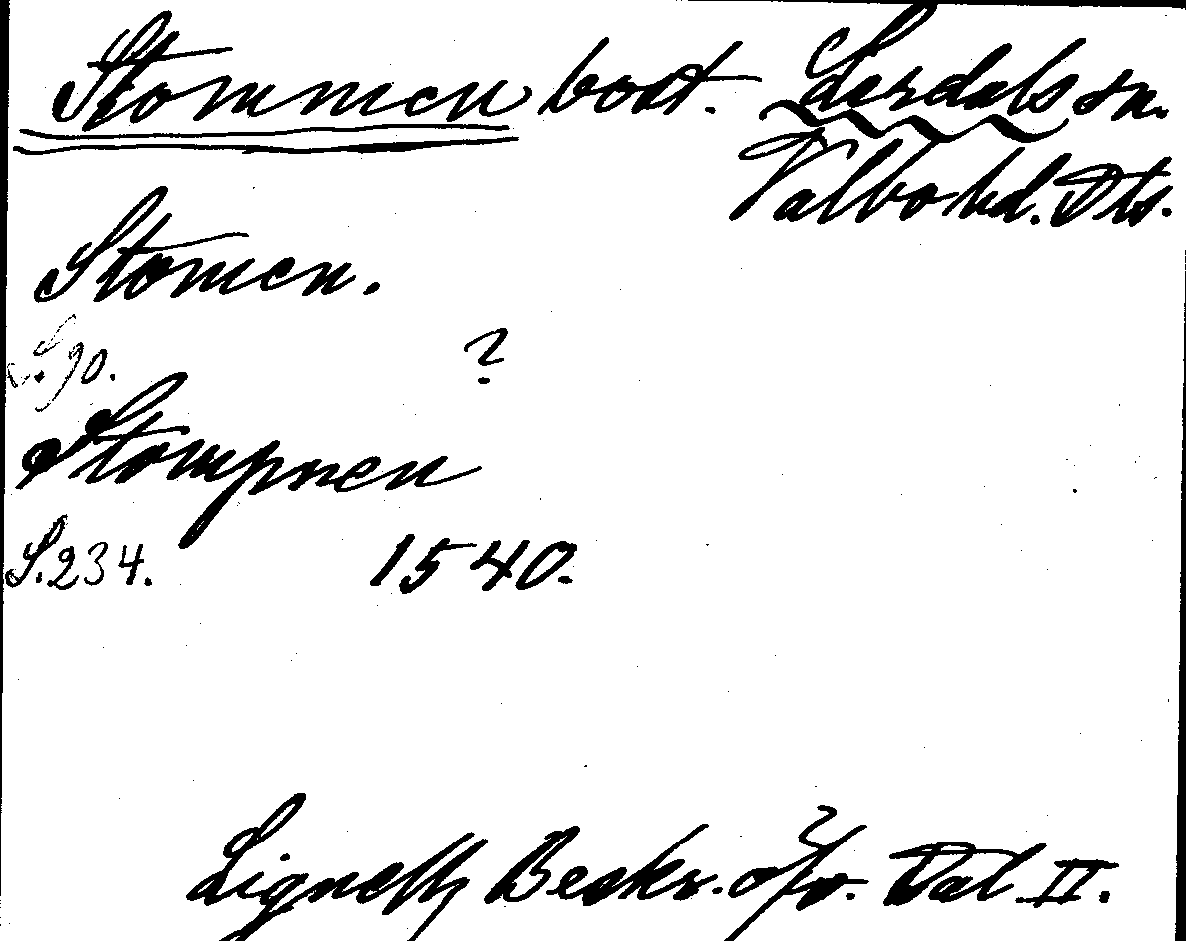 Stommen bost. Lerdals sn.
Valbo hd. Dls.
Stomen.
S. 90. ?
Stompnen
S. 234. 1540.
Lignells Beskr. öfv. Dal. II.